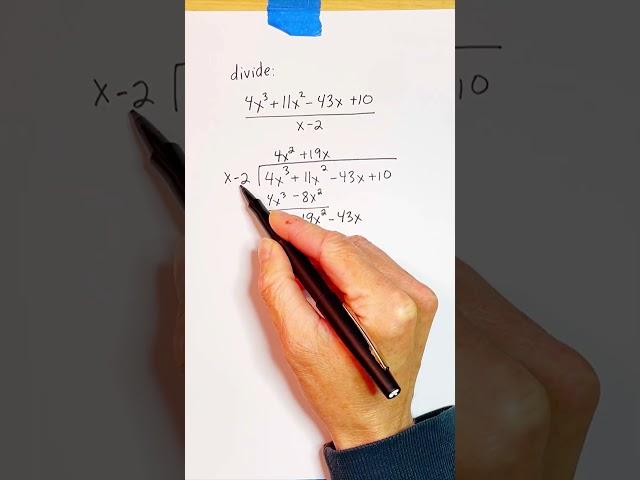 divide:
4x³ + 11x² - 43x + 10
x - 2
4x² + 19x
x - 2 4x³ + 11x² - 43x + 10
4x³ - 8x²
19x² - 43x